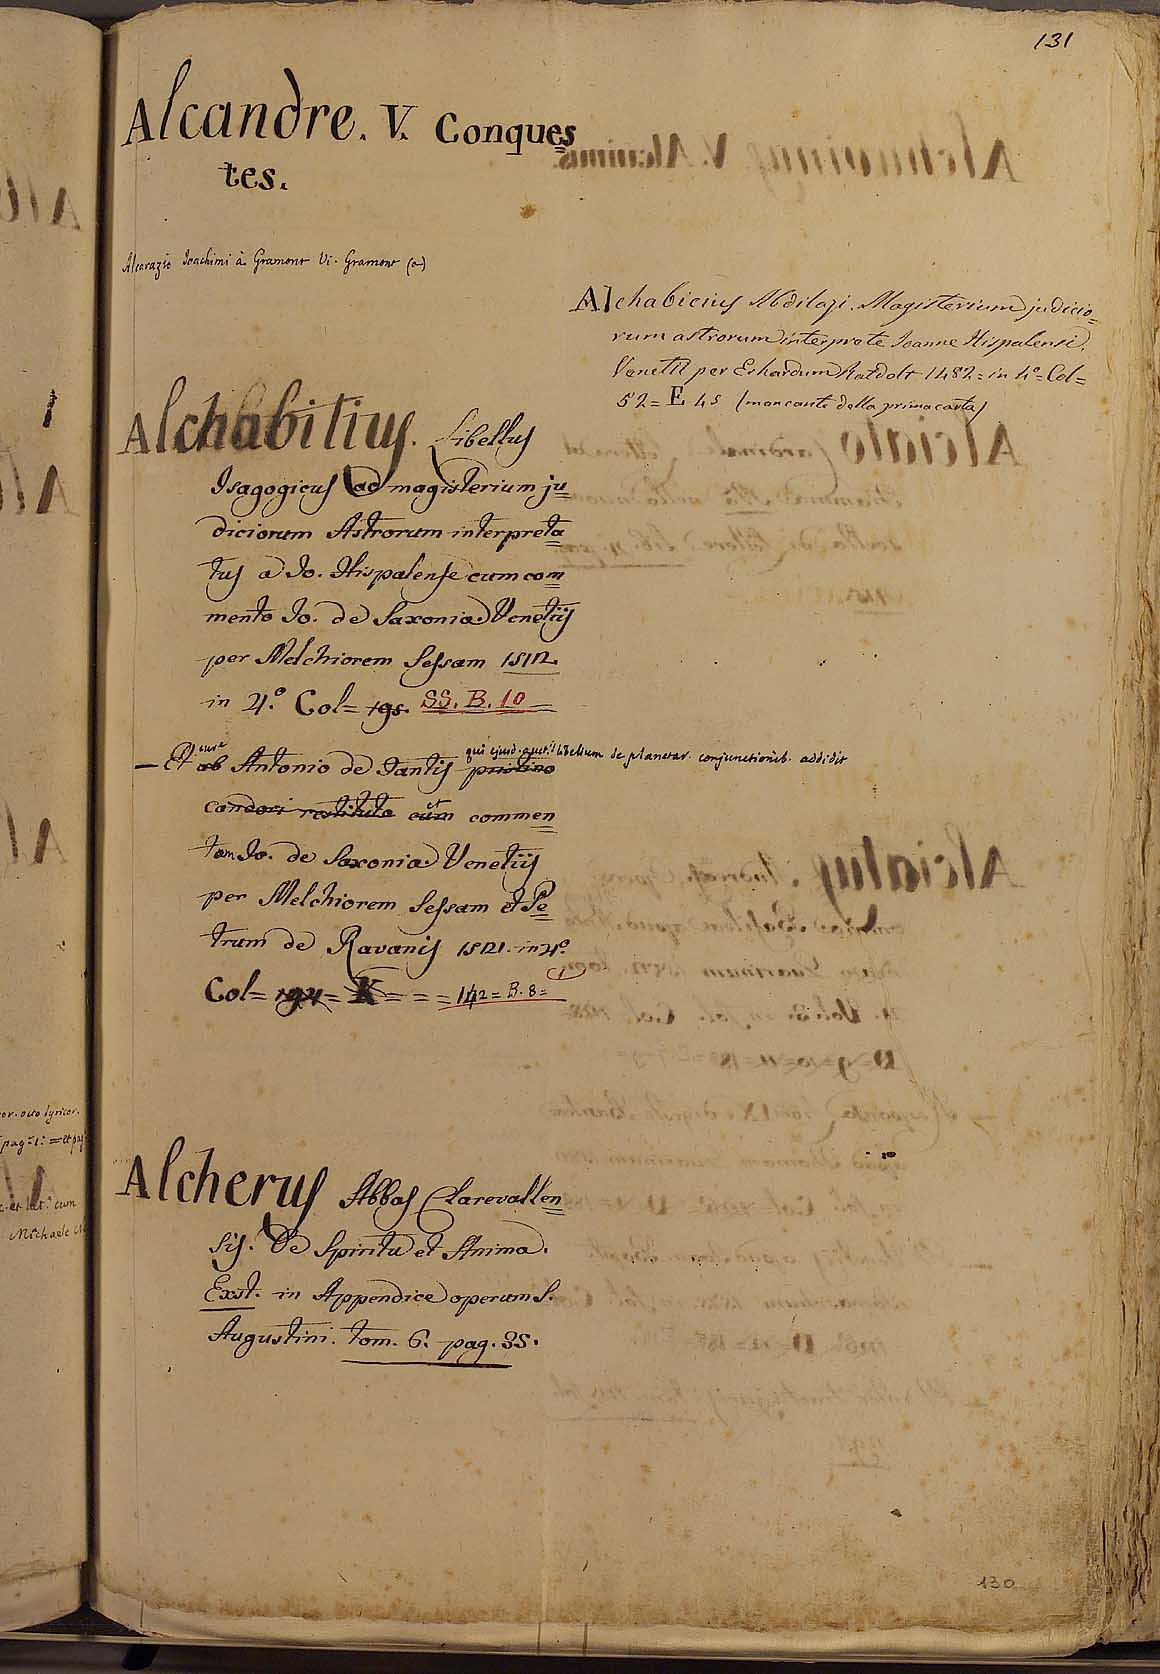 131
Alcandre. V. Conques
tes.
Alcarazio Joachimi à Gramont Vi. Gramont (a)
Alchabicius Abdilazi. Magisterium judicio=
rum astrorum interprete Joanne Hispalensi.
Venetii per Erhardum Ratdolt 1482 = in 4° = Col=
52 = E 45 (mancante della prima carta)
Alchabitius. Libellus
Isagogicus ad magisterium ju=
diciorum Astrorum interpreta=
tus a Jo. Hispalense cum com=
mento Jo. de Saxonia. Venetiis
per Melchiorem Sessam 1512.
in 4.° Col= 195. SS. B. 10 =
— Et ab cure Antonio de Fantis pristino qui ejusd. auct. libellum de planetar. conjunctionib. addidit
candori restituto cum et commen=
tam Jo. de Saxonia. Venetiis
per Melchiorem Sessam et Pe=
trum de Ravanis 1521. in 4°.
Col= 194= K = = = 142 = B. 8 =
Alcherus Abbas Clarevallen=
sis. De Spiritu et Anima.
Exst. in Appendice operum S.
Augustini. tom. 6. pag. 35.
130